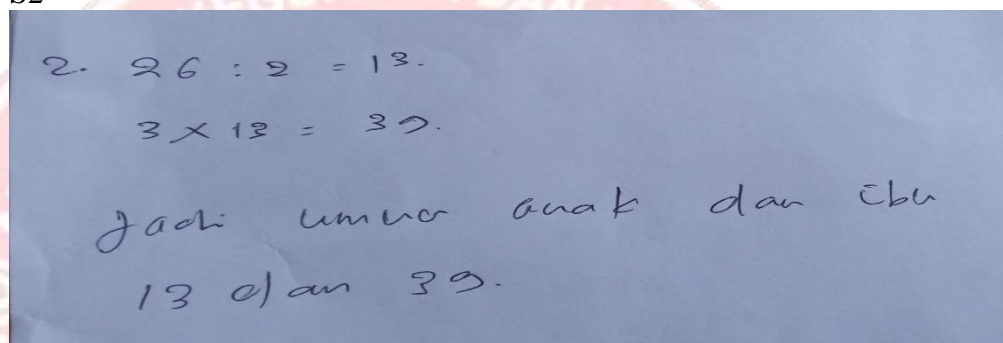 S2
2. 26 : 2 = 13.
3 X 13 = 39.
Jadi umur anak dan ibu
13 dan 39.